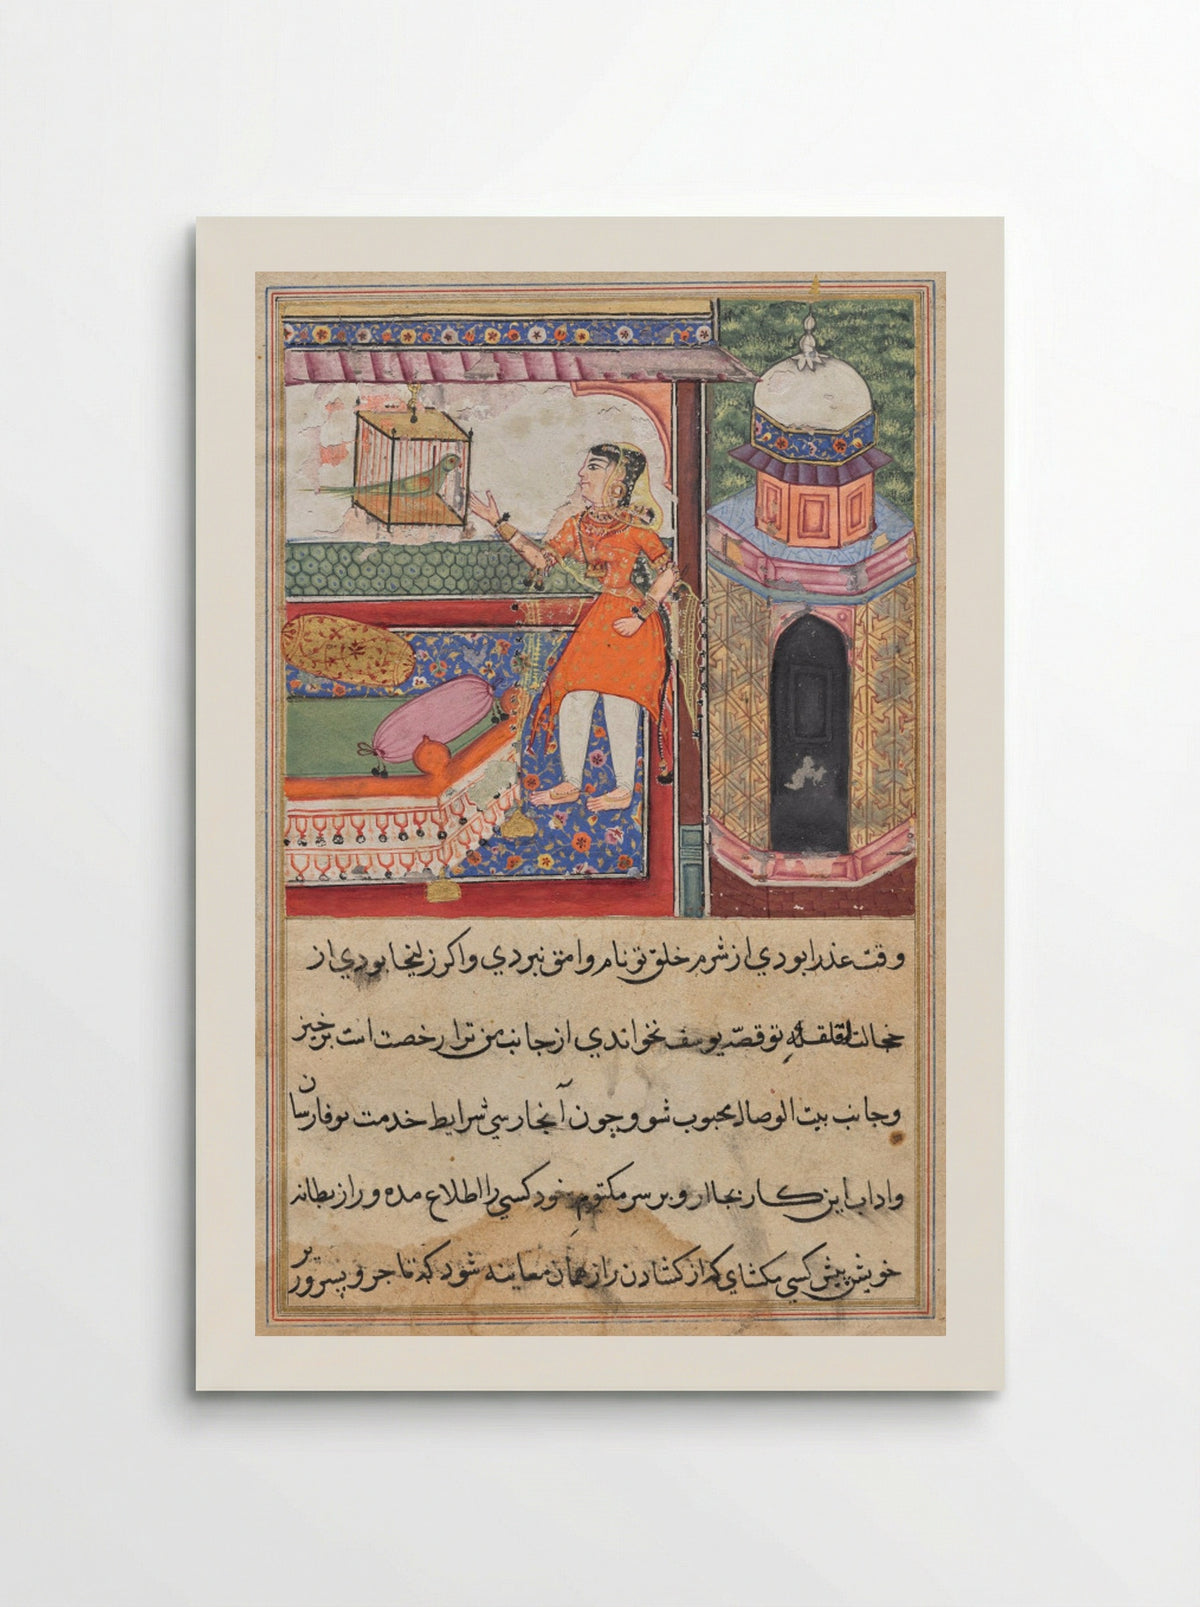 وقت عذرا بودي از شرم خلق تو نام وامق نبردي و اكر زليخا بودي از
خجالت قلقله تو قصّه يوسف نخواندي از جانب من ترا رخصت است برخيز
و جانب بيت الوصال محبوب شو و چون آنجا رسي شرايط خدمت بوفا رسان
و اداب اين كار بجا ار و بر سر مكتوم خود كسي را اطلاع مده و راز بطانه
خويش پيش كسي مكشاي كه از كشادن راز همان معاينه شود كه تاجر و پسر